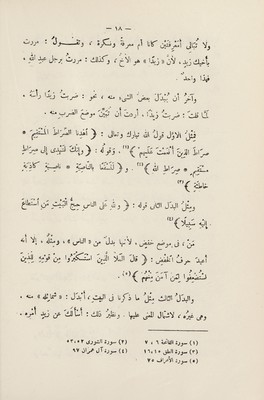 — ١٨ —
ولا تُبالى أمعرفتَيْن كانا أم معرفةً ونكرةً ، وتقــول : مررت
بأخيك زيدٍ ، لأنّ « زيدًا » هو الأخُ ، وكذلك : مررتُ برجلٍ عبدِ اللهِ
فهذا واحد .
وآخرُ أن يُبْدَلَ بعضُ الشىء منه ، نحو : ضربتُ زيدًا رأسَهُ .
لمّا قلتَ : ضربتُ زيدًا ، أردتَ أن تُبَيِّنَ موضعَ الضربِ منه .
فمِثْلُ الأوّلِ قولُ الله تبارك وتعالى : ﴿ اهْدِنَا الصِّرَاطَ الْمُسْتَقِيمَ *
صِرَاطَ الَّذِينَ أَنْعَمْتَ عَلَيْهِمْ ﴾(١) . وقولُه : ﴿ وَإِنَّكَ لَتَهْدِى إِلَى صِرَاطٍ
مُسْتَقِيمٍ * صِرَاطِ اللَّهِ ﴾(٢) . و ﴿ لَنَسْفَعًا بِالنَّاصِيَةِ * نَاصِيَةٍ كَاذِبَةٍ
خَاطِئَةٍ ﴾(٣)
ومِثْلُ البدلِ الثانى قولُه : ﴿ ولِلَّهِ عَلَى النَّاسِ حِجُّ الْبَيْتِ مَنِ اسْتَطَاعَ
إِلَيْهِ سَبِيلًا ﴾(٤)
مَنْ ، فى موضع خفضٍ ، لأنها بدلٌ من « الناس » ، ومِثْلُه ، إلا أنه
أُعيدَ حرفُ الخفض : ﴿ قَالَ الْمَلَأُ الَّذِينَ اسْتَكْبَرُوا مِنْ قَوْمِهِ لِلَّذِينَ
اسْتُضْعِفُوا لِمَنْ آمَنَ مِنْهُمْ ﴾(٥) .
والبدل الثالث مِثْلُ ما ذكرنا فى البيت ، أبدَلَ : « شمائلَه » منه ،
وهى غيرُه ، لاشتمال المعنى عليها . ونظيرُ ذلك : أسألُكَ عن زيدٍ أمْرِه .
(١) سورة الفاتحة ٦ ، ٧
(٢) سورة الشورى ٥٢ ، ٥٣
(٣) سورة العلق ١٥ ، ١٦
(٤) سورة آل عمران ٩٧
(٥) سورة الأعراف ٧٥